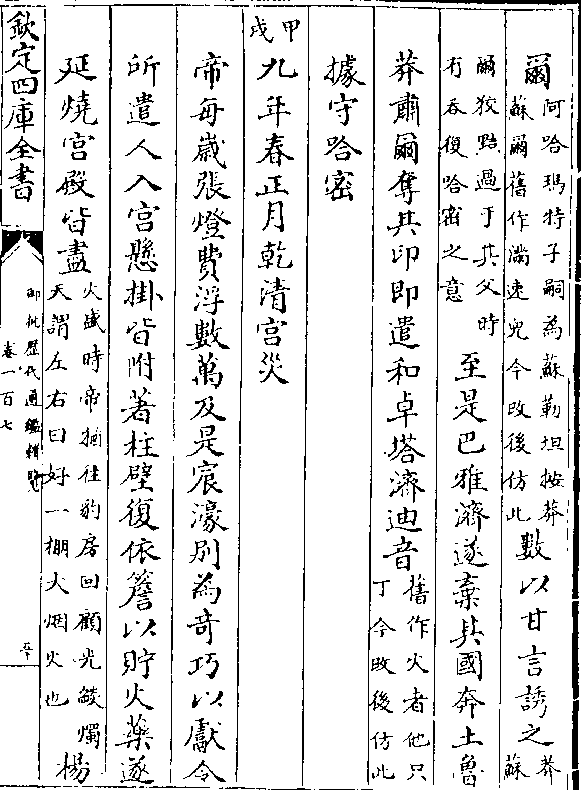 爾阿哈瑪特子嗣為蘇勒坦按莽
蘇爾舊作滿速兒今改後仿此數以甘言誘之莽蘇
爾狡黠過于其父時
有吞復哈密之意至是巴雅濟遂棄其國奔土魯
莽肅爾奪其印即遣和卓塔濟迪音舊作火者他只
丁今改後仿此
據守哈密
甲戌九年春正月乾清宫災
帝每歲張燈費浮數萬及是宸濠别為奇巧以獻令
所遣人入宫懸掛皆附著柱壁復依簷以貯火藥遂
延燒宫殿皆盡火盛時帝猶往豹房回顧光燄燭
天謂左右曰好一棚大烟火也楊
欽定四庫全書
御批歷代通鑑輯覽
卷一百七